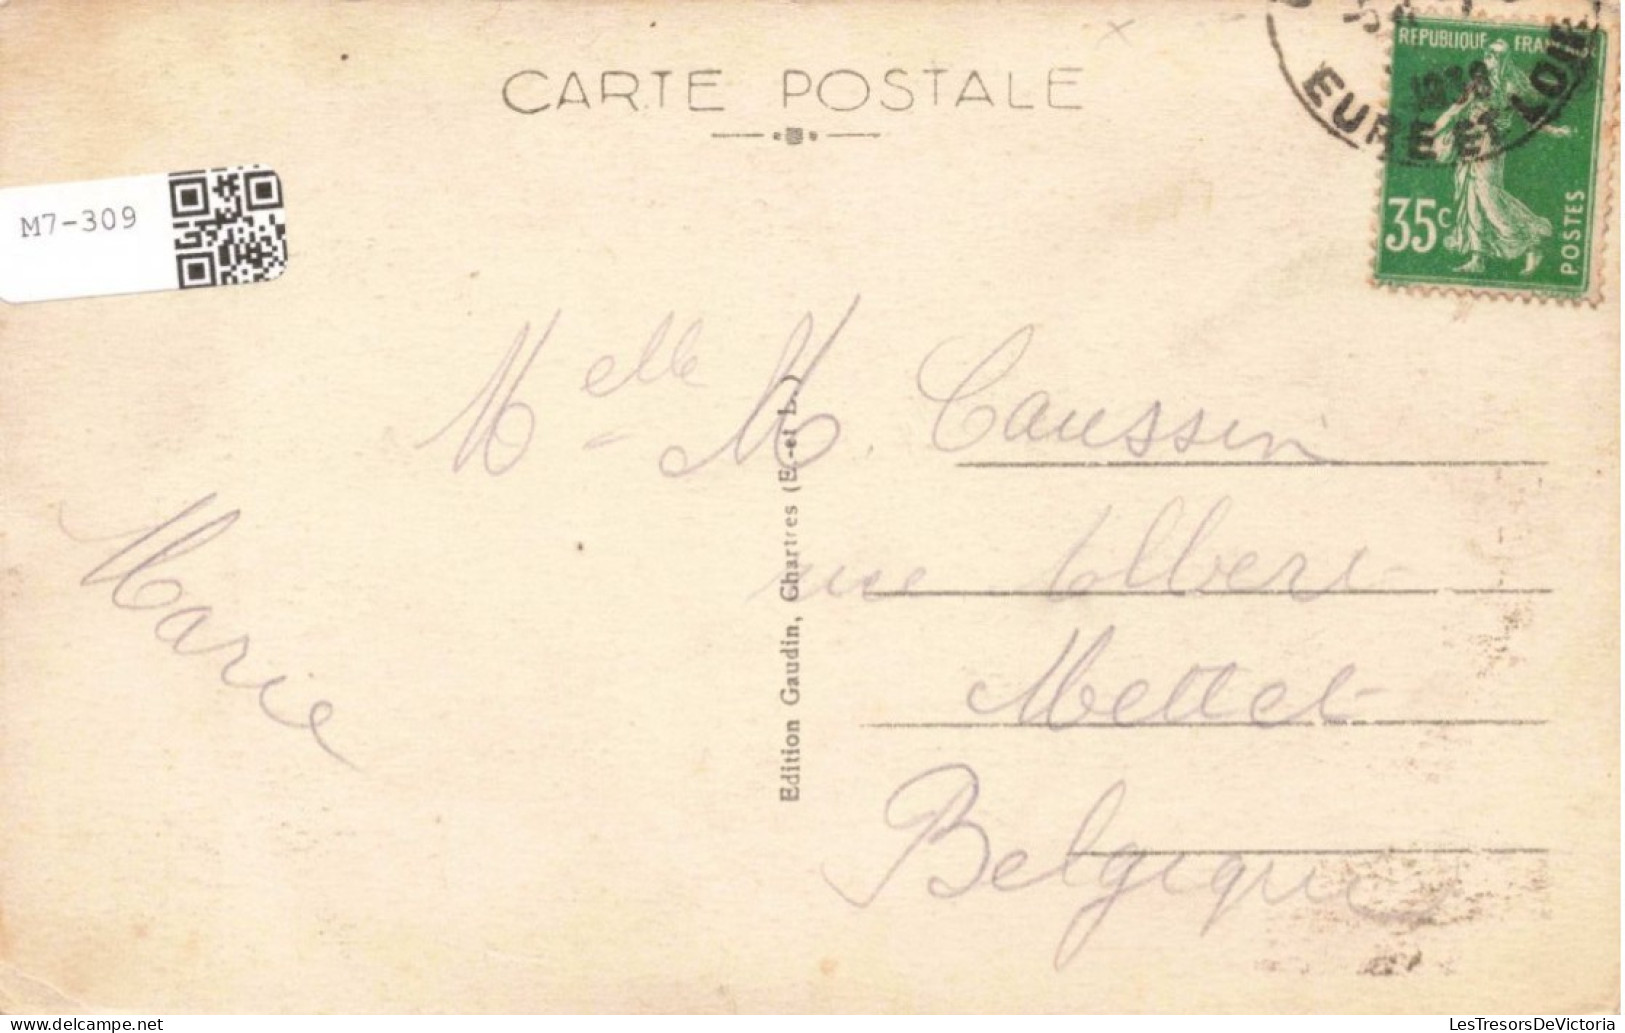 CARTE POSTALE
EURE ET LOIR
1938
REPUBLIQUE FRANC
35c
POSTES
M7-309
Melle M. Caussin
rue Albert
Mettet
Belgique
Marie
Edition Gaudin, Chartres (E.-et L.)
LesTresorsDeVictoria